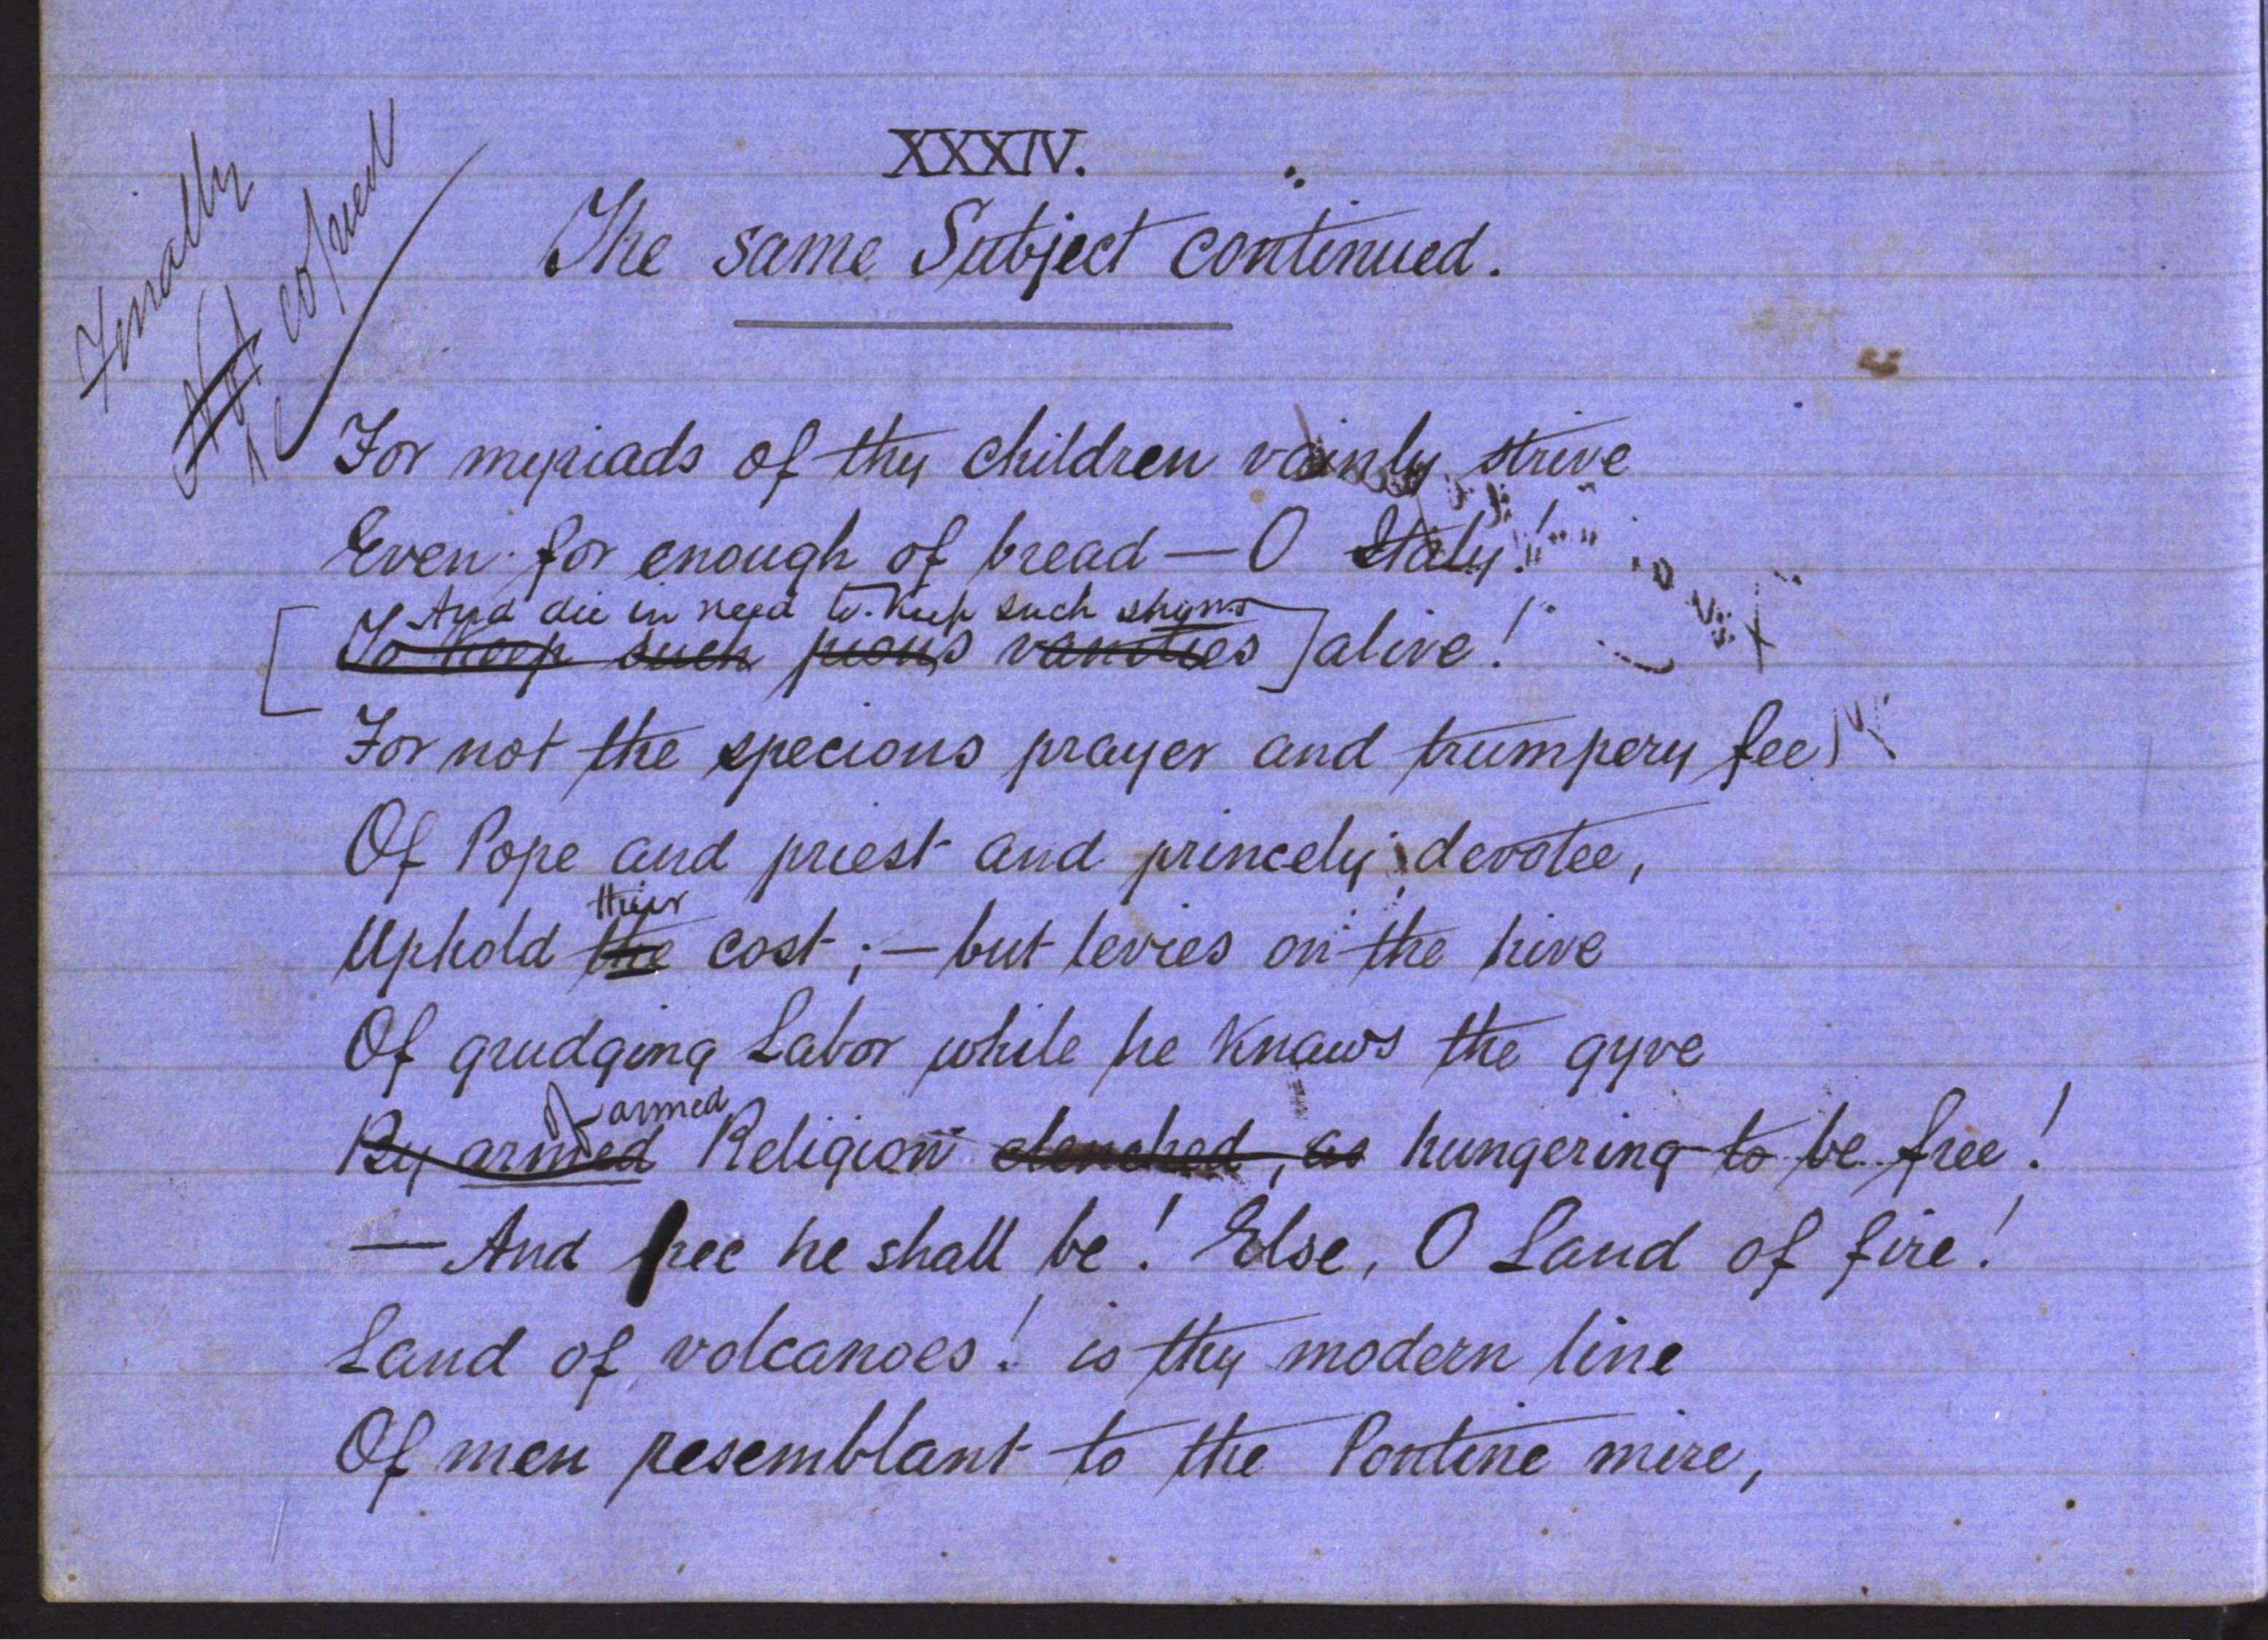 Finally
Not copied
XXXIV.
The same Subject continued.
For myriads of thy children vainly strive
Even for enough of bread — O Italy!
And die in need to keep such shams
To keep such pious vanities alive!
For not the specious prayer and trumpery fee
Of Pope and priest and princely devotee,
their
Uphold the cost; — but levies on the hive
Of grudging Labor while he knaws the gyve
Of armed
By armed Religion clenched, as hungering to be free!
— And free he shall be! Else, O Land of fire!
Land of volcanoes! is thy modern line
Of men resemblant to the Pontine mire,